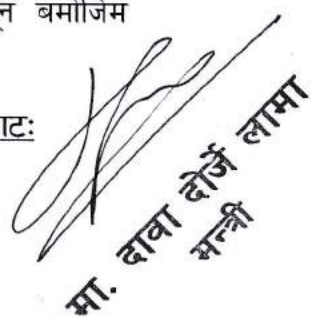 बमोजिम
मा. दावा दोर्जे लामा
मन्त्री